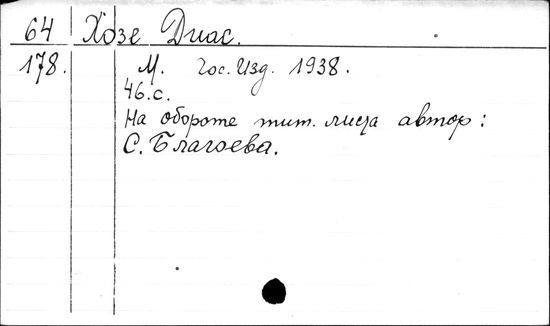 64 Хозе Диас.
178. М. Гос. Изд. 1938.
46.с.
На обороте тит. листа автор:
С. Благоева.